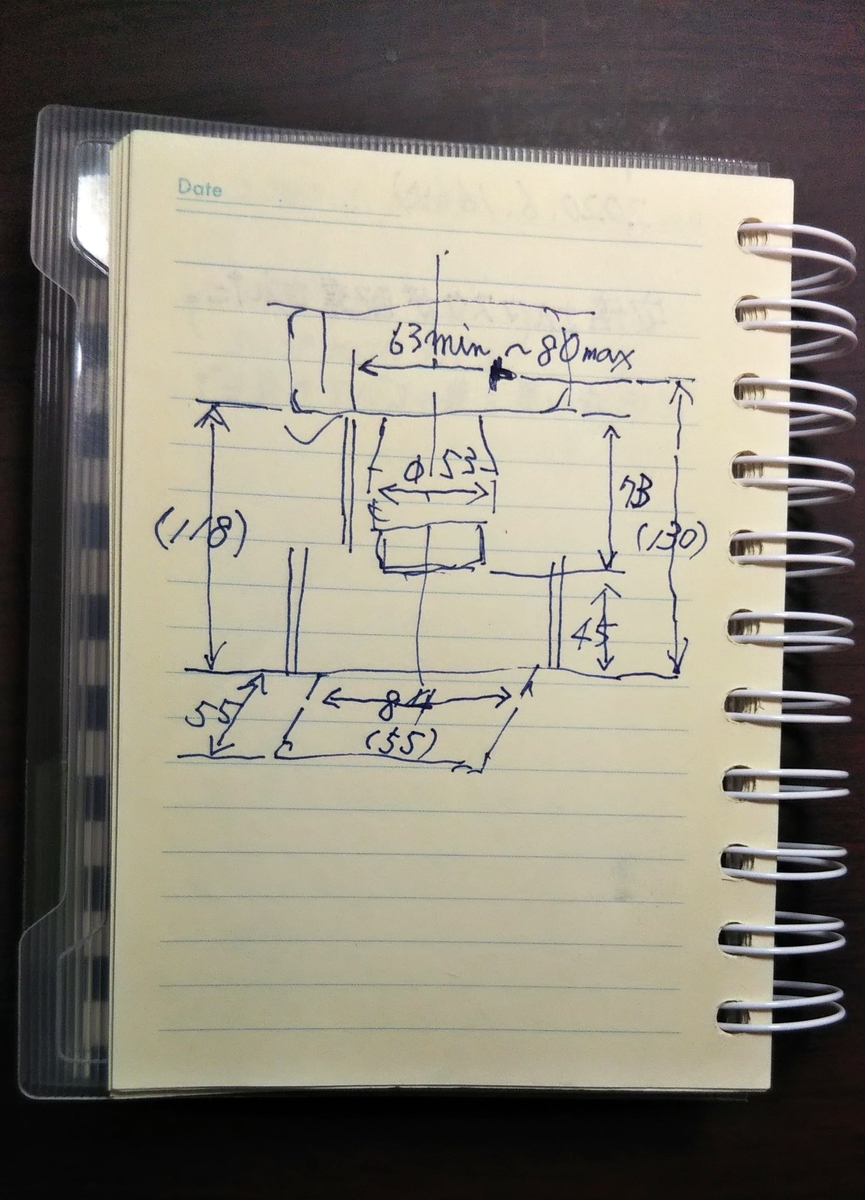 Date
63min ~80max
φ53
73
(118)
(130)
45
55
84
(55)